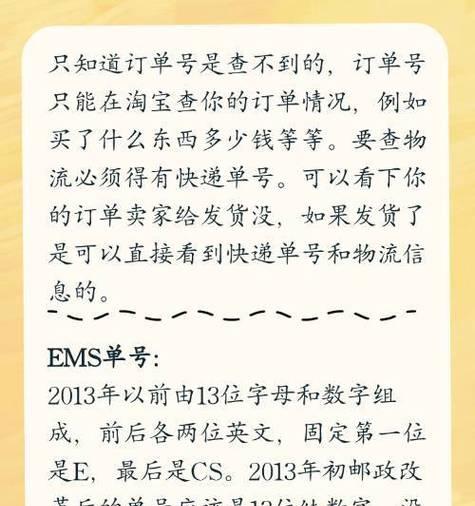 只知道订单号是查不到的，订单号
只能在淘宝查你的订单情况，例如
买了什么东西多少钱等等。要查物
流必须得有快递单号。可以看下你
的订单卖家给发货没，如果发货了
是可以直接看到快递单号和物流信
息的。
EMS单号：
2013年以前由13位字母和数字组
成，前后各两位英文，固定第一位
是E，最后是CS。2013年初邮政改
革后的单号应该是13位纯数字，没